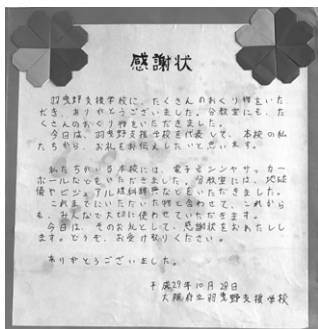 感謝状
羽曳野支援学校に、たくさんのおくり物をいた
だき、ありがとうございました。分教室にも、た
くさんのおくり物をいただきました。
今日は、羽曳野支援学校を代表して、本校の私
たちから、お礼をお伝えしたいと思います。
私たちがいる本校には、電子オルガンやサッカー
ボールなどをいただきました。分教室には、地球
儀やビジュアル理科辞典などをいただきました。
これまでにいただいた物と合わせて、これから
も、みんなで大切に使わせていただきます。
今日は、そのお礼として、感謝状をおわたしし
ます。どうぞ、お受け取りください。
ありがとうございました。
平成29年10月28日
大阪府立羽曳野支援学校